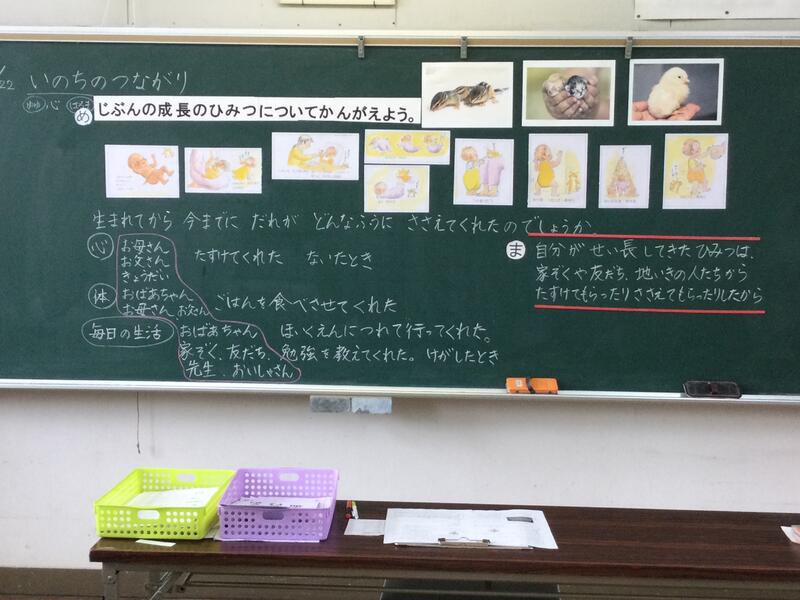 22 いのちのつながり
心
め じぶんの成長のひみつについてかんがえよう。
生まれてから 今までに だれが どんなふうに ささえてくれたのでしょうか。
心 お母さん
お父さん
きょうだい
たすけてくれた ないたとき
体 おばあちゃん
お母さん お父さん
ごはんを食べさせてくれた
毎日の生活 おばあちゃん ほいくえんにつれて行ってくれた。
家ぞく、友だち、勉強を教えてくれた。けがしたとき
先生、おいしゃさん
ま 自分がせい長してきたひみつは、
家ぞくや友だち、地いきの人たちから
たすけてもらったりささえてもらったりしたから